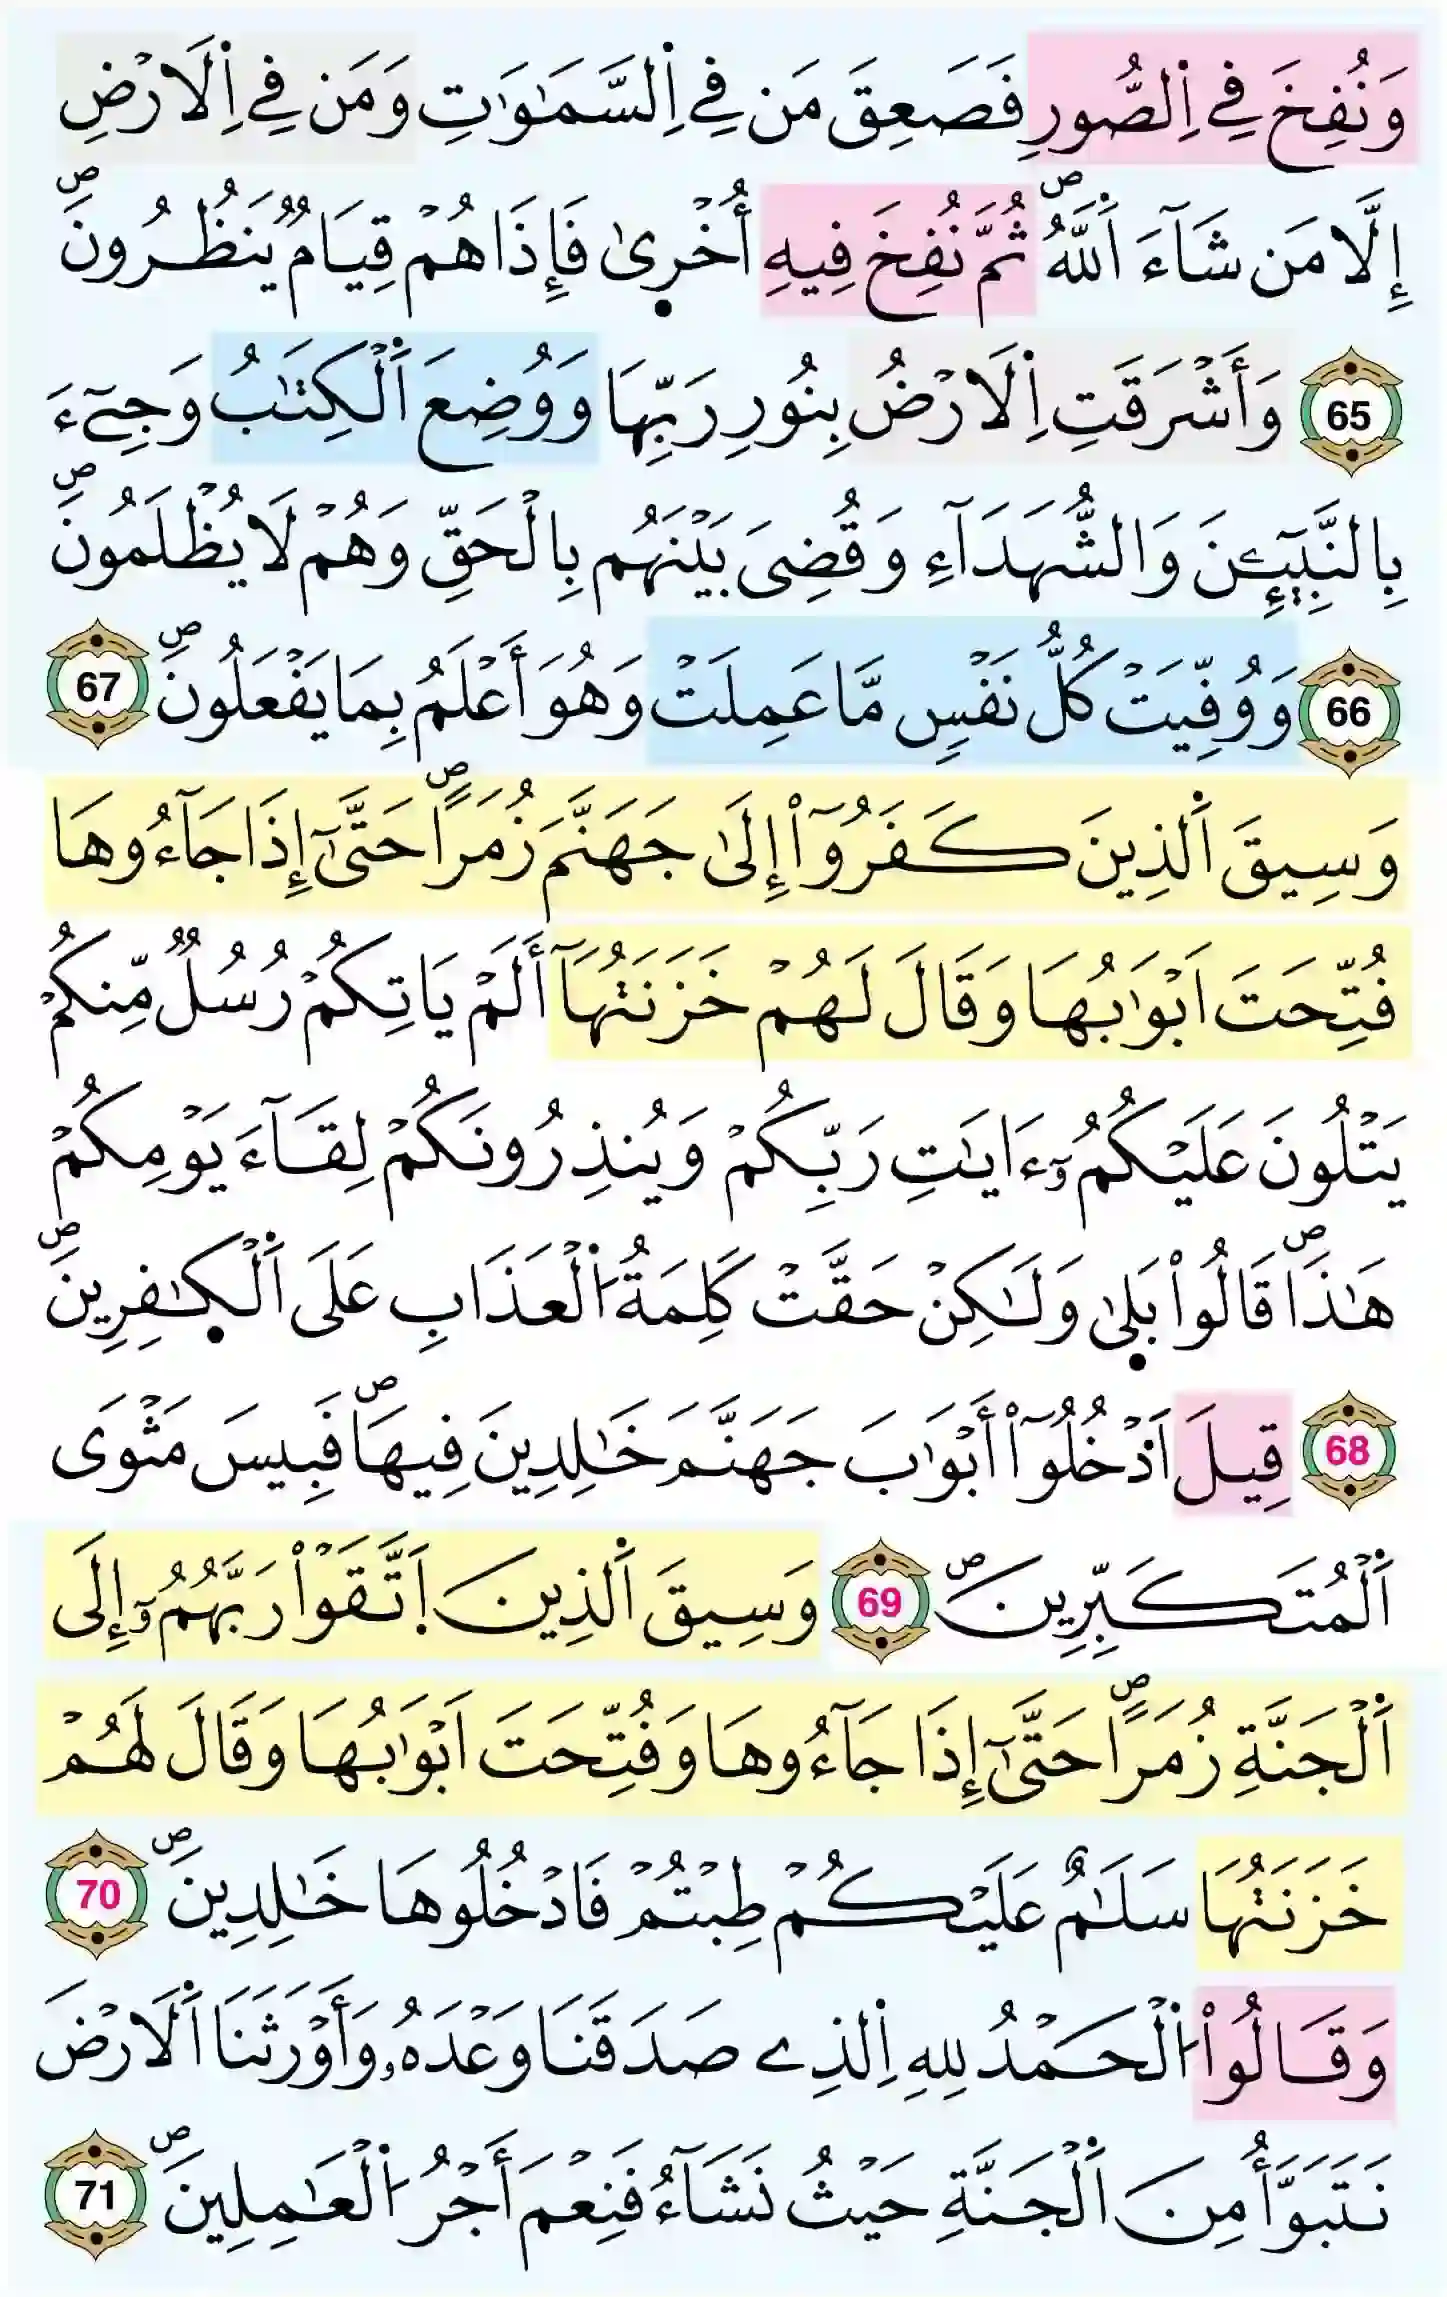 وَنُفِخَ فِے اِ۬لصُّورِ فَصَعِقَ مَن فِے اِ۬لسَّمَٰوَٰتِ وَمَن فِے اِ۬لَارْضِ
إِلَّا مَن شَآءَ اَ۬للَّهُۖ ثُمَّ نُفِخَ فِيهِ أُخْر۪يٰ فَإِذَا هُمْ قِيَامٞ يَنظُرُونَۖ
65 وَأَشْرَقَتِ اِ۬لَارْضُ بِنُورِ رَبِّهَا وَوُضِعَ اَ۬لْكِتَٰبُ وَجِےٓءَ
بِالنَّبِيٓـِٕۧنَ وَالشُّهَدَآءِ وَقُضِيَ بَيْنَهُم بِالْحَقِّ وَهُمْ لَا يُظْلَمُونَۖ
66 وَوُفِّيَتْ كُلُّ نَفْسٖ مَّا عَمِلَتْ وَهُوَ أَعْلَمُ بِمَا يَفْعَلُونَۖ 67
وَسِيقَ اَ۬لذِينَ كَفَرُوٓاْ إِلَىٰ جَهَنَّمَ زُمَراًۖ حَتَّىٰٓ إِذَا جَآءُوهَا
فُتِّحَتَ اَبْوَٰبُهَا وَقَالَ لَهُمْ خَزَنَتُهَآ أَلَمْ يَاتِكُمْ رُسُلٞ مِّنكُمْ
يَتْلُونَ عَلَيْكُمُۥٓ ءَايَٰتِ رَبِّكُمْ وَيُنذِرُونَكُمْ لِقَآءَ يَوْمِكُمْ
هَٰذَاۖ قَالُواْ بَل۪يٰ وَلَٰكِنْ حَقَّتْ كَلِمَةُ اُ۬لْعَذَابِ عَلَى اَ۬لْكٰ۪فِرِينَۖ
68 قِيلَ اَ۟دْخُلُوٓاْ أَبْوَٰبَ جَهَنَّمَ خَٰلِدِينَ فِيهَاۖ فَبِيسَ مَثْوَى
اَ۬لْمُتَكَبِّرِينَۖ 69 وَسِيقَ اَ۬لذِينَ اَ۪تَّقَوْاْ رَبَّهُمُۥٓ إِلَى
اَ۬لْجَنَّةِ زُمَراًۖ حَتَّىٰٓ إِذَا جَآءُوهَا وَفُتِّحَتَ اَبْوَٰبُهَا وَقَالَ لَهُمْ
خَزَنَتُهَا سَلَٰمٌ عَلَيْكُمْ طِبْتُمْ فَادْخُلُوهَا خَٰلِدِينَۖ 70
وَقَالُواْ اُ۬لْحَمْدُ لِلهِ اِ۬لذِے صَدَقَنَا وَعْدَهُۥ وَأَوْرَثَنَا اَ۬لَارْضَ
نَتَبَوَّأُ مِنَ اَ۬لْجَنَّةِ حَيْثُ نَشَآءُ فَنِعْمَ أَجْرُ اُ۬لْعَٰمِلِينَۖ 71